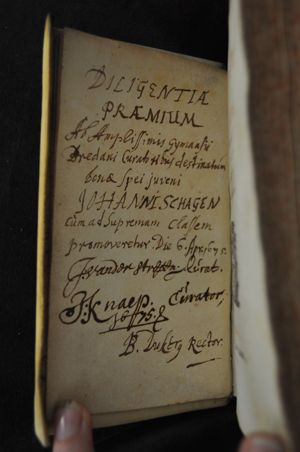 DILIGENTIÆ
PRÆMIUM
Ab Amplissimis gymnasii
Bredani Curatoribus destinatum
bonæ spei juveni
JOHANNI, SCHAGEN
Cum ad supremam Classem
promoveretur. Die 6. Apr.
Curat.
J. Knaep. Curator,
B. Rector.